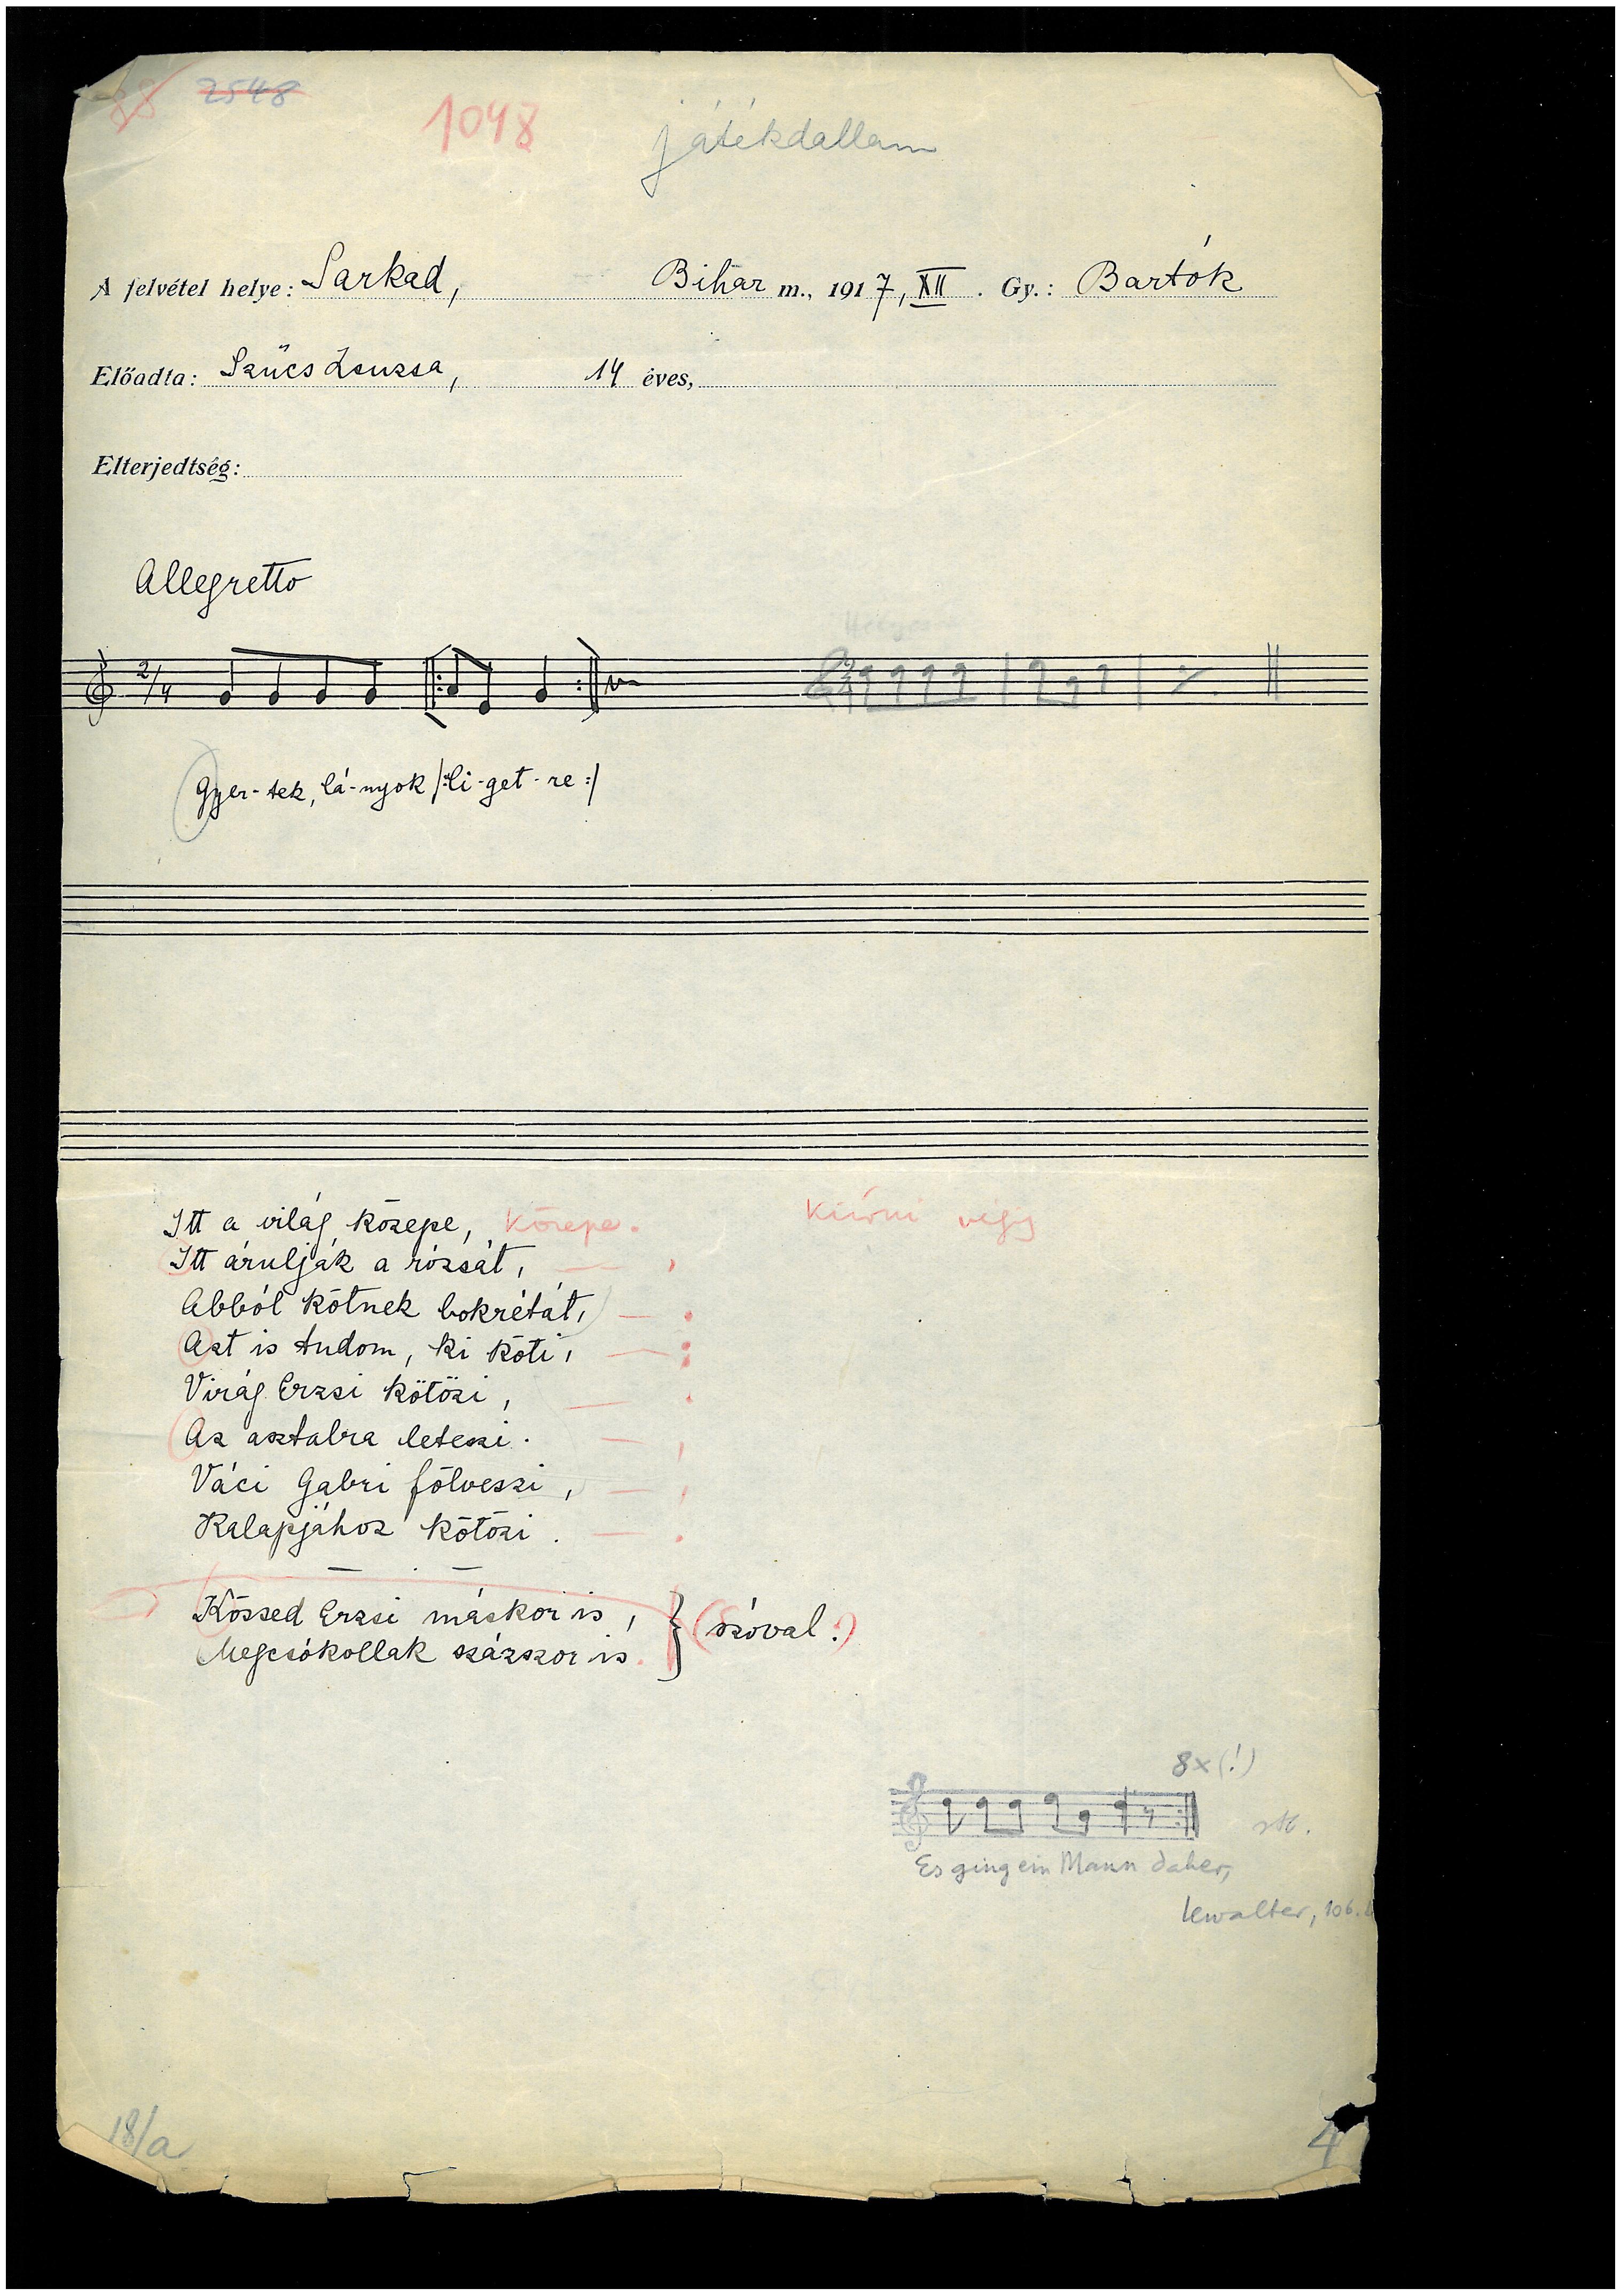 88 2548
1048 játékdallam
A felvétel helye: Sarkad, Bihar m., 1917, XII. Gy.: Bartók
Előadta: Szűcs Zsuzsa, 14 éves,
Elterjedtség:
Allegretto
2/4
Gyer-tek, lá-nyok /:li-get-re:/
Itt a világ közepe, közepe. Kiírni végig
Itt árulják a rózsát,
Abból kötnek bokrétát,
Azt is tudom, ki köti,
Virág Erzsi kötözi,
Az asztalra leteszi.
Váci Gabri fölveszi,
Kalapjához kötözi.
Kössed Erzsi máskor is,
Megcsókollak százszor is. } (szóval.)
8x(!)
stb.
Es ging ein Mann daher,
Lewalter, 106.
18/a
4